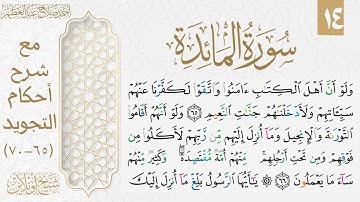 ١٤
سورة المائدة
أحمد صلاح عبد العظيم
مع
شرح
أحكام
التجويد
(٦٥-٧٠)
وَلَوۡ أَنَّ أَهۡلَ ٱلۡكِتَٰبِ ءَامَنُواْ وَٱتَّقَوۡاْ لَكَفَّرۡنَا عَنۡهُمۡ
سَيِّـَٔاتِهِمۡ وَلَأَدۡخَلۡنَٰهُمۡ جَنَّٰتِ ٱلنَّعِيمِ ٦٥ وَلَوۡ أَنَّهُمۡ أَقَامُواْ
ٱلتَّوۡرَىٰةَ وَٱلۡإِنجِيلَ وَمَآ أُنزِلَ إِلَيۡهِم مِّن رَّبِّهِمۡ لَأَكَلُواْ مِن
فَوۡقِهِمۡ وَمِن تَحۡتِ أَرۡجُلِهِمۚ مِّنۡهُمۡ أُمَّةٞ مُّقۡتَصِدَةٞۖ وَكَثِيرٞ مِّنۡهُمۡ
سَآءَ مَا يَعۡمَلُونَ ٦٦ ۞ يَٰٓأَيُّهَا ٱلرَّسُولُ بَلِّغۡ مَآ أُنزِلَ إِلَيۡكَ